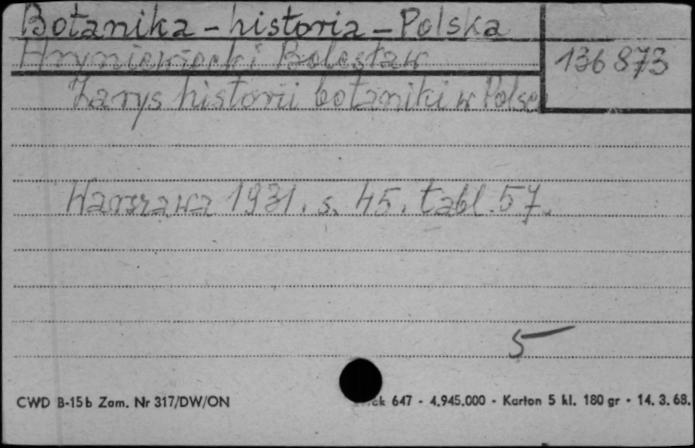 Botanika - historia - Polska
Hryniewiecki Bolesław
136 873
Zarys historii botaniki w Polsce
Warszawa 1931. s. 45. tabl. 57.
5
CWD B-15b Zam. Nr 317/DW/ON
647 - 4.945.000 - Karton 5 kl. 180 gr - 14. 3. 68.